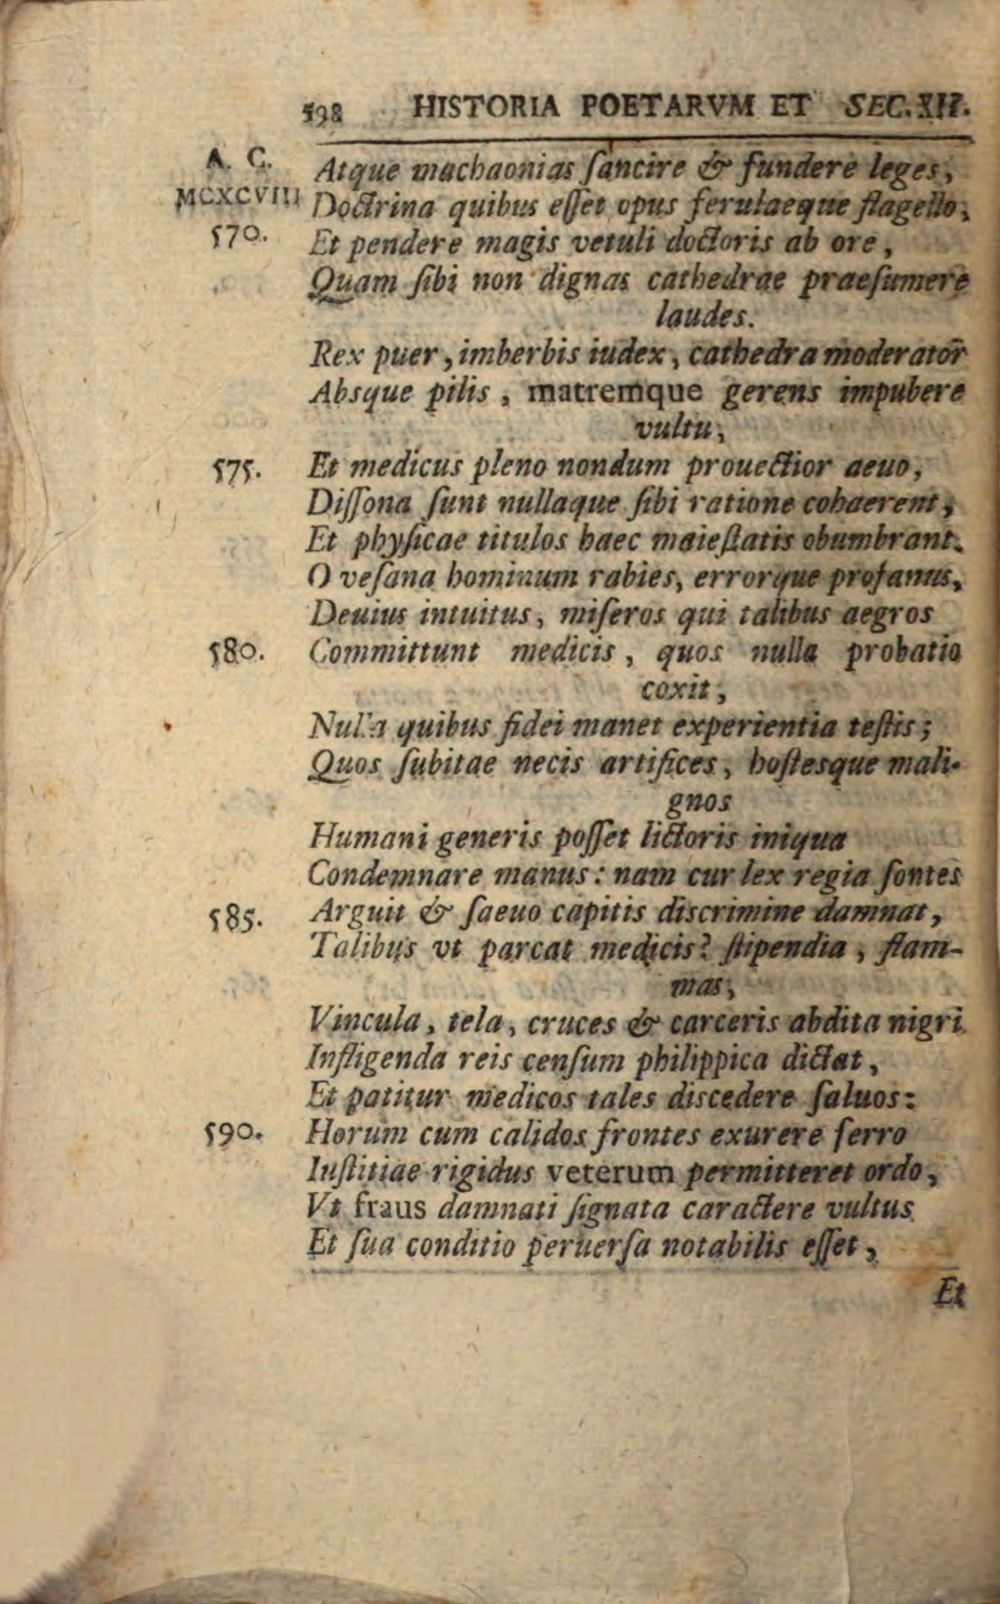 598 HISTORIA POETARVM ET SEC. XII.
A. C. Atque machaonias ſancire & fundere leges,
MCXCVIII Doctrina quibus eſſet opus ferulaeque flagello,
570. Et pendere magis vetuli doctoris ab ore,
Quam ſibi non dignas cathedrae praeſumere
laudes.
Rex puer, imberbis iudex, cathedra moderator
Absque pilis, matremque gerens impubere
vultu,
575. Et medicus pleno nondum prouectior aeuo,
Diſſona ſunt nullaque ſibi ratione cohaerent,
Et phyſicae titulos haec maieſtatis obumbrant.
O veſana hominum rabies, errorque profanus,
Deuius intuitus, miſeros qui talibus aegros
580. Committunt medicis, quos nulla probatio
coxit,
Nulla quibus fidei manet experientia teſtis;
Quos ſubitae necis artifices, hoſtesque mali-
gnos
Humani generis poſſet lictoris iniqua
Condemnare manus: nam cur lex regia ſontes
585. Arguit & ſaeuo capitis discrimine damnat,
Talibus vt parcat medicis? ſtipendia, flam-
mas,
Vincula, tela, cruces & carceris abdita nigri
Infligenda reis cenſum philippica dictat,
Et patitur medicos tales discedere ſaluos:
590. Horum cum calidos frontes exurere ferro
Iuſtitiae rigidus veterum permitteret ordo,
Vt fraus damnati ſignata caractere vultus
Et ſua conditio peruerſa notabilis eſſet,
Et